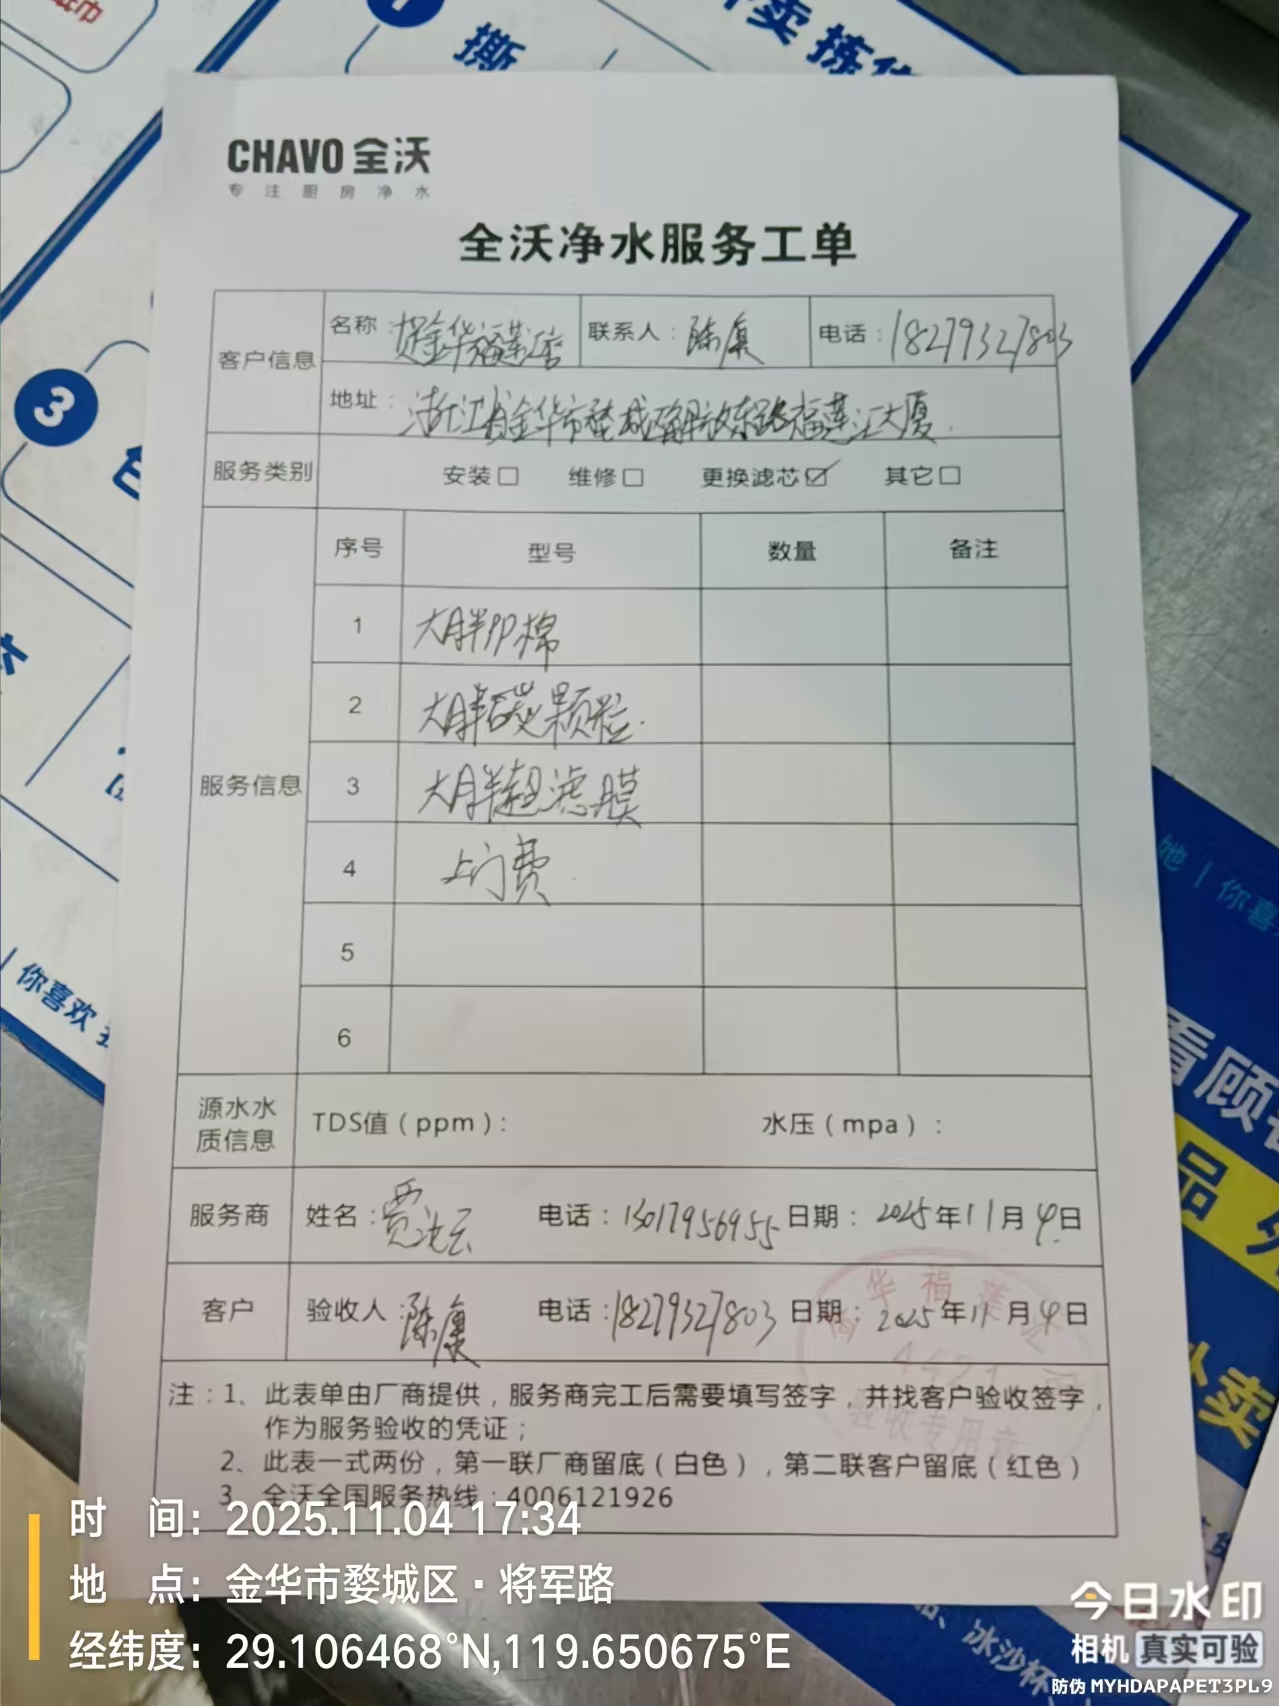 撕
外卖 拣
3
CHAVO 全沃
专注厨房净水
全沃净水服务工单
客户信息
名称:金华福莲店
联系人:陈康
电话:18279327803
地址:浙江省金华市婺城区解放东路福莲汇大厦.
服务类别
安装□ 维修□ 更换滤芯☑ 其它□
服务信息
序号 型号 数量 备注
1 大胖PP棉
2 大胖碳颗粒.
3 大胖超滤膜
4 上门费
5
6
源水水质信息
TDS值(ppm): 水压(mpa):
服务商 姓名:贾 电话:13017956955 日期:2025年11月4日
客户 验收人:陈康 电话:18279327803 日期:2025年11月4日
华福莲
验收专用章
注:1、此表单由厂商提供,服务商完工后需要填写签字,并找客户验收签字,
作为服务验收的凭证;
2、此表一式两份,第一联厂商留底(白色),第二联客户留底(红色)
3、全沃全国服务热线:4006121926
你喜欢
她|你喜
看顾
品
外卖
冰沙杯、
时 间:2025.11.04 17:34
地 点:金华市婺城区·将军路
经纬度:29.106468°N,119.650675°E
今日水印
相机 真实可验
防伪 MYHDAPAPET3PL9